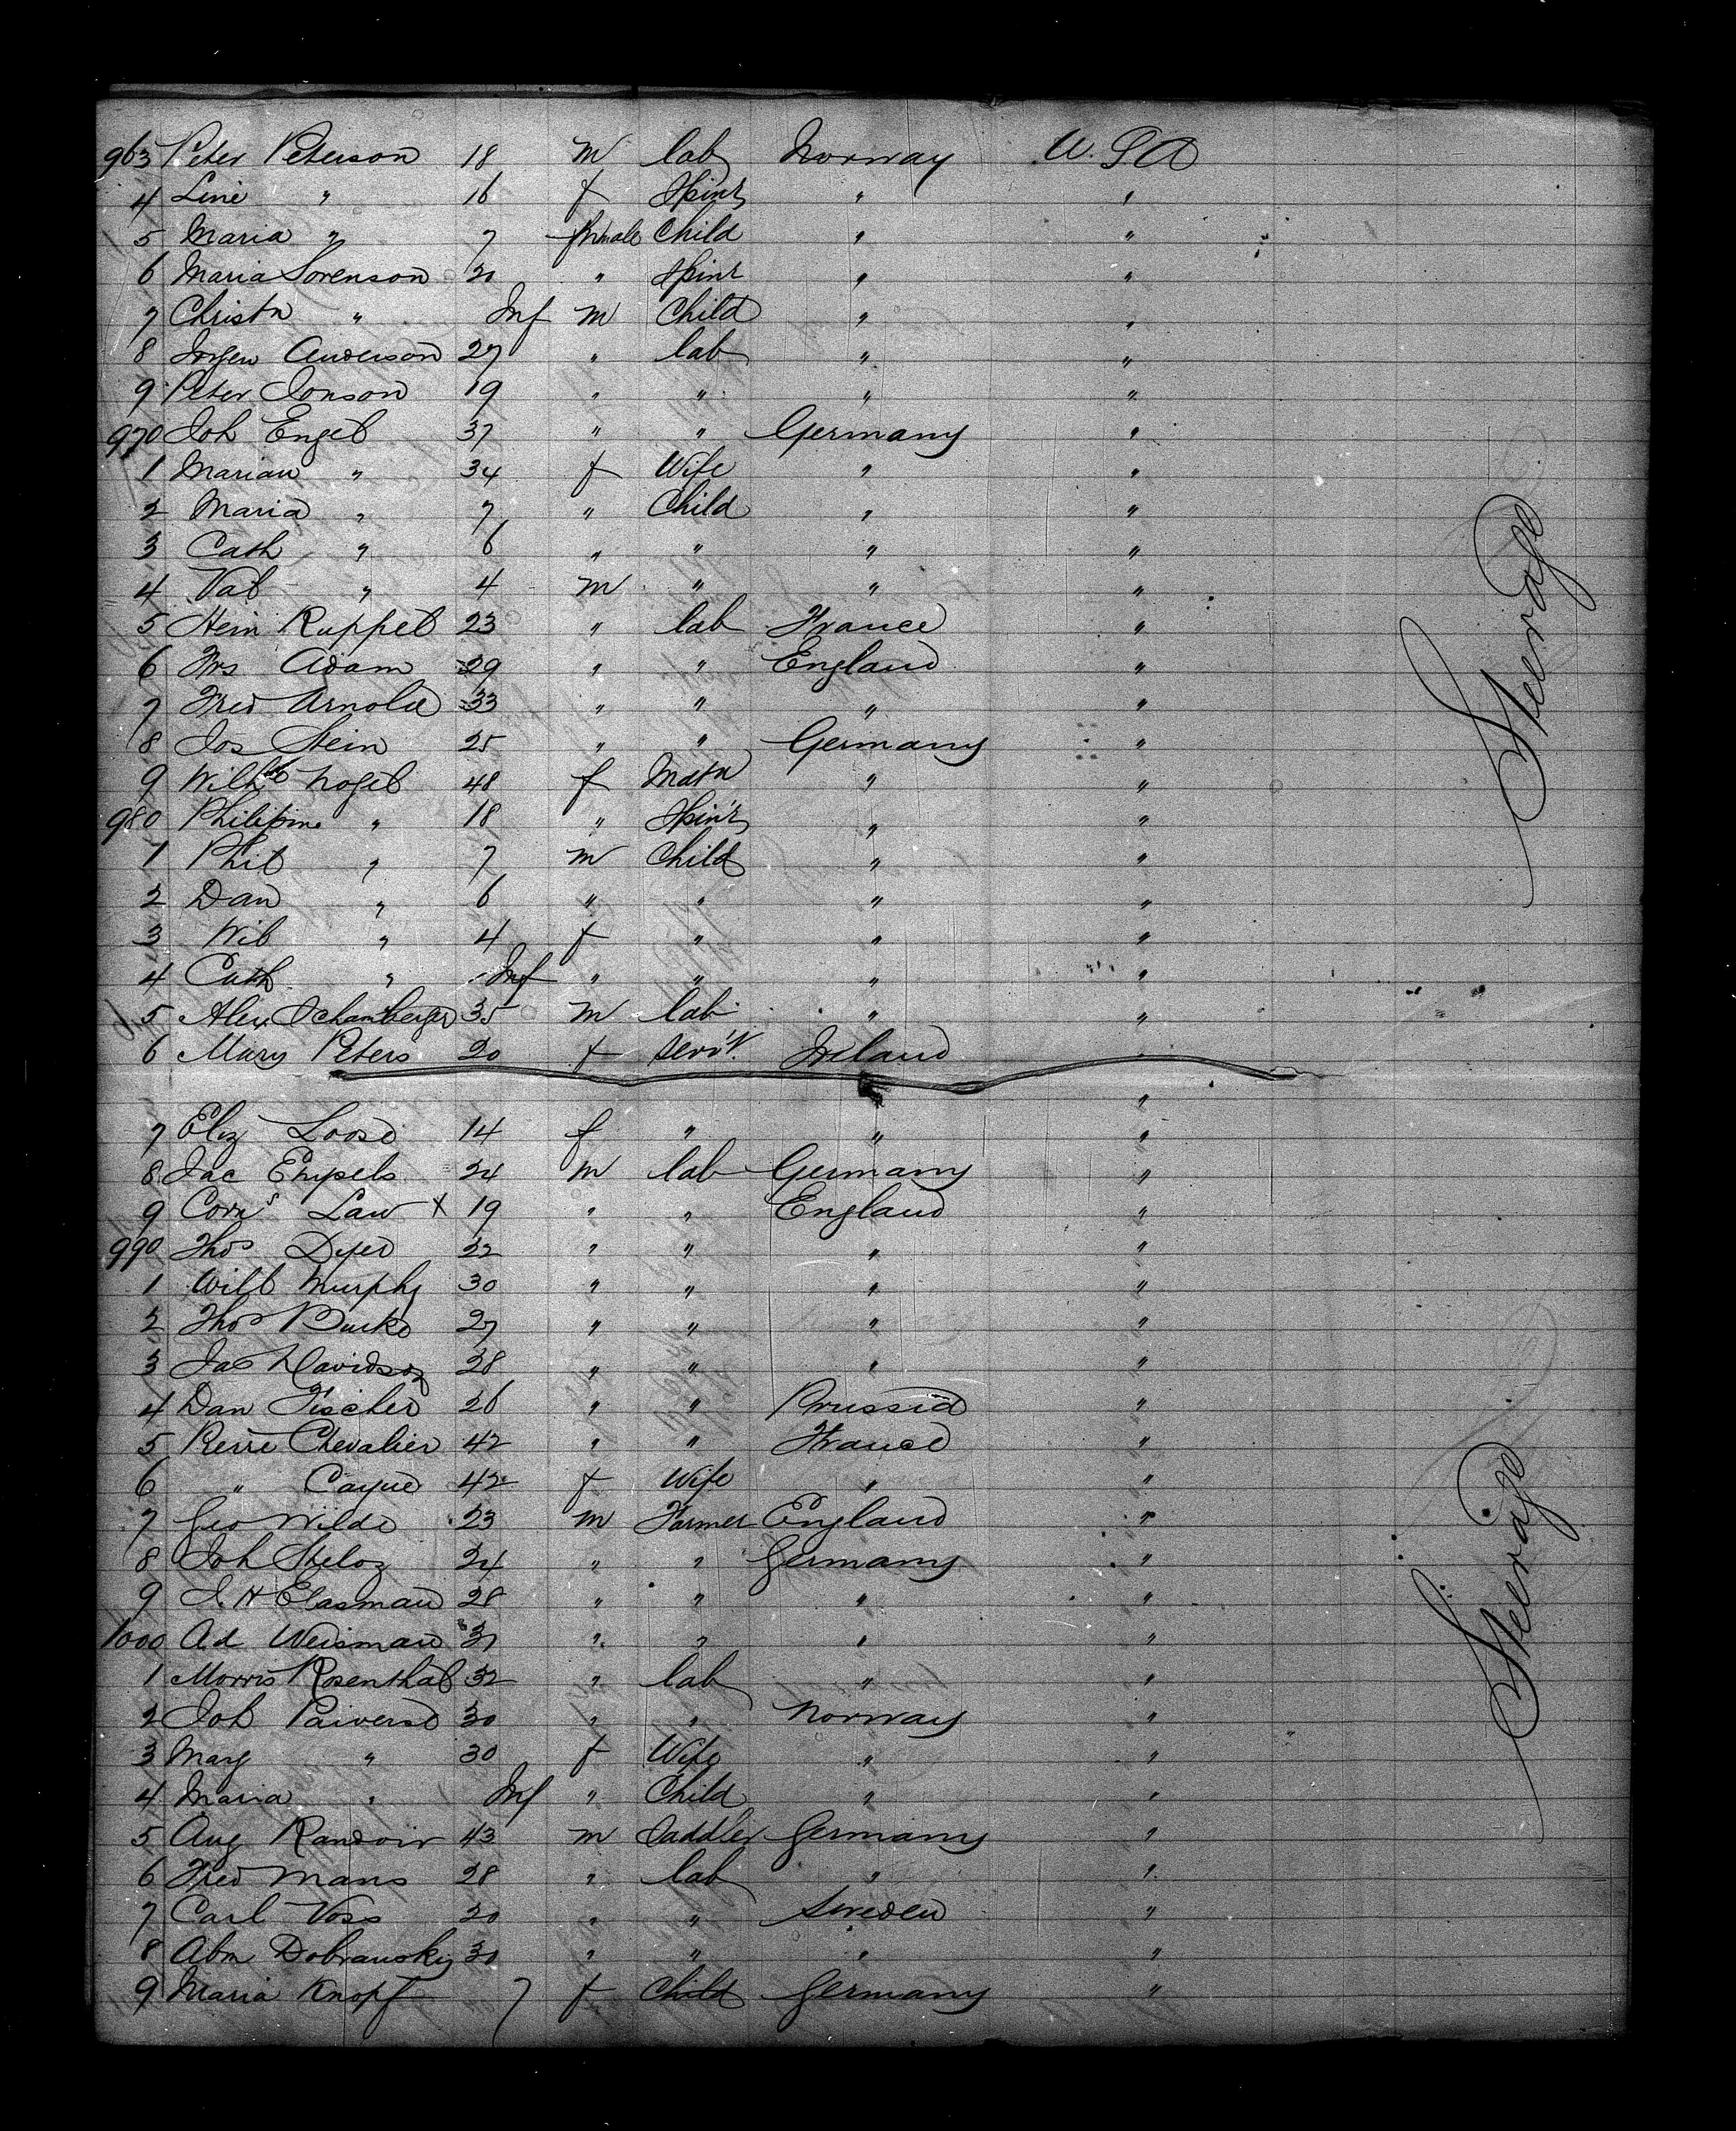 963 Peter Peterson 18 m lab Norway U.S.A
4 Line " 16 f Spinr " "
5 Maria " 7 female Child " "
6 Maria Sorenson 20 " Spinr " "
7 Christn " Inf m Child " "
8 Jorgen Anderson 27 " lab " "
9 Peter Jonson 19 " " " "
970 Joh Engel 37 " " Germany "
1 Marian " 34 f Wife " "
2 Maria " 7 " Child " "
3 Cath " 6 " " " "
4 Val " 4 m " " "
5 Hein Ruppel 23 " lab France "
6 Frs Adam 29 " " England "
7 Fred Arnold 33 " " " "
8 Jos Stein 25 " " Germany "
9 Wilhe Nogel 48 f Matn " "
980 Philipine " 18 " Spin'r " "
1 Phil " 7 m Child " "
2 Dan " 6 " " " "
3 Wil " 4 f " " "
4 Cath " Inf " " " "
5 Alex Schamberger 35 m lab " "
6 Mary Peters 20 f serv't Ireland "
"
7 Eliz Loose 14 f " " "
8 Jac Empels 24 m lab Germany "
9 Corns Law x 19 " " England "
990 Thos Dyer 22 " " " "
1 Will Murphy 30 " " " "
2 Thos Burke 27 " " " "
3 Jas Davidson 28 " " " "
4 Dan Fischer 26 " " Prussia "
5 Pierre Chevalier 42 " " France "
6 " 42 f Wife " "
7 Geo Wilde 23 m Farmer England "
8 Joh Steloz 24 " " Germany "
9 J. H Elasman 28 " " " "
1000 Ad Weisman 31 " " " "
1 Morris Rosenthal 32 " lab " "
2 Joh 30 " " Norway "
3 Mary " 30 f Wife " "
4 Maria " Inf " Child " "
5 Aug Randoir 43 m Saddler Germany "
6 Fred Mans 28 " lab " "
7 Carl Voss 20 " " Sweden "
8 Abm Dobransky 30 " " " "
9 Maria Knopf 7 f Child Germany "
Steerage
Steerage